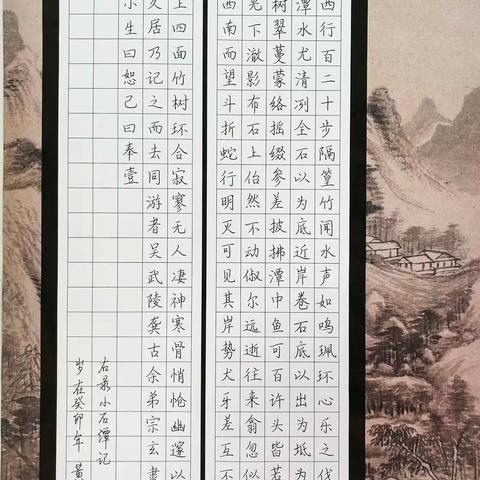 西行百二十步隔篁竹闻水声如鸣珮环心乐之伐
潭水尤清冽全石以为底近岸卷石底以出为坻为
树翠蔓蒙络摇缀参差披拂潭中鱼可百许头皆若
光下澈影布石上佁然不动俶尔远逝往来翕忽似
西南而望斗折蛇行明灭可见其岸势犬牙差互不
上四面竹树环合寂寥无人凄神寒骨悄怆幽邃以
久居乃记之而去同游者吴武陵龚古余弟宗玄隶
小生曰恕己曰奉壹
右录小石潭记
岁在癸卯年 黄